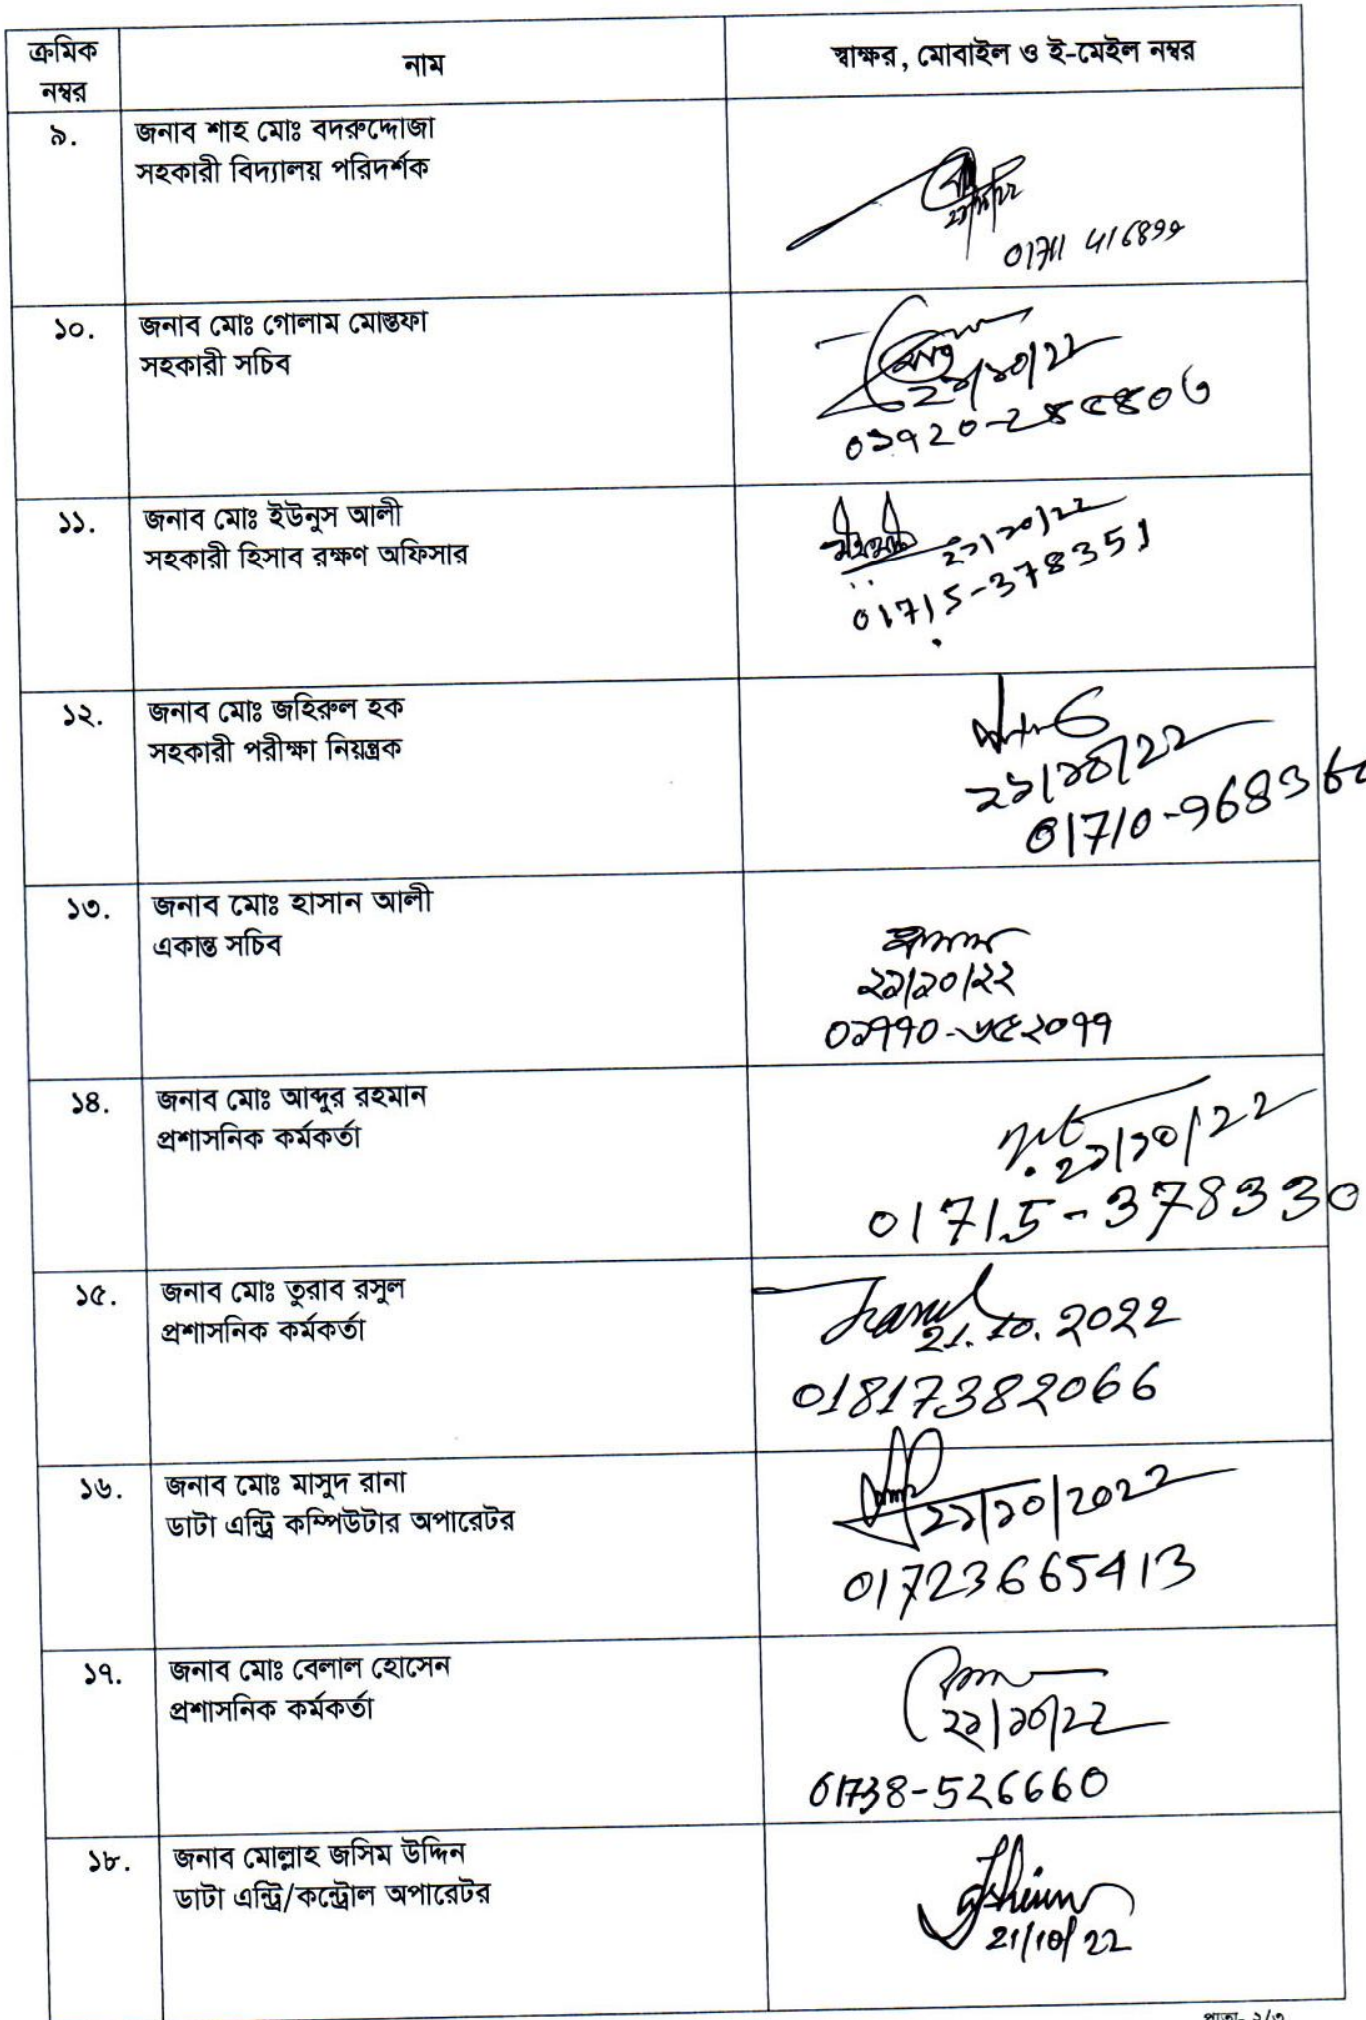 ক্রমিক নম্বর
নাম
স্বাক্ষর, মোবাইল ও ই-মেইল নম্বর
৯.
জনাব শাহ মোঃ বদরুদ্দোজা
সহকারী বিদ্যালয় পরিদর্শক
১০.
জনাব মোঃ গোলাম মোস্তফা
সহকারী সচিব
২১/১০/22
১১.
জনাব মোঃ ইউনুস আলী
সহকারী হিসাব রক্ষণ অফিসার
২১/১০/২২
01715-378351
১২.
জনাব মোঃ জহিরুল হক
সহকারী পরীক্ষা নিয়ন্ত্রক
২১/১০/22
১৩.
জনাব মোঃ হাসান আলী
একান্ত সচিব
২১/১০/২২
০১৭৭০-৬৫২০৭৭
১৪.
জনাব মোঃ আব্দুর রহমান
প্রশাসনিক কর্মকর্তা
২১/১০/22
01715-378330
১৫.
জনাব মোঃ তুরাব রসুল
প্রশাসনিক কর্মকর্তা
21.10.2022
01817382066
১৬.
জনাব মোঃ মাসুদ রানা
ডাটা এন্ট্রি কম্পিউটার অপারেটর
২১/১০/2022
01723665413
১৭.
জনাব মোঃ বেলাল হোসেন
প্রশাসনিক কর্মকর্তা
২১/১০/22
01738-526660
১৮.
জনাব মোল্লাহ জসিম উদ্দিন
ডাটা এন্ট্রি/কন্ট্রোল অপারেটর
21/10/22
পাতা- ২/৩